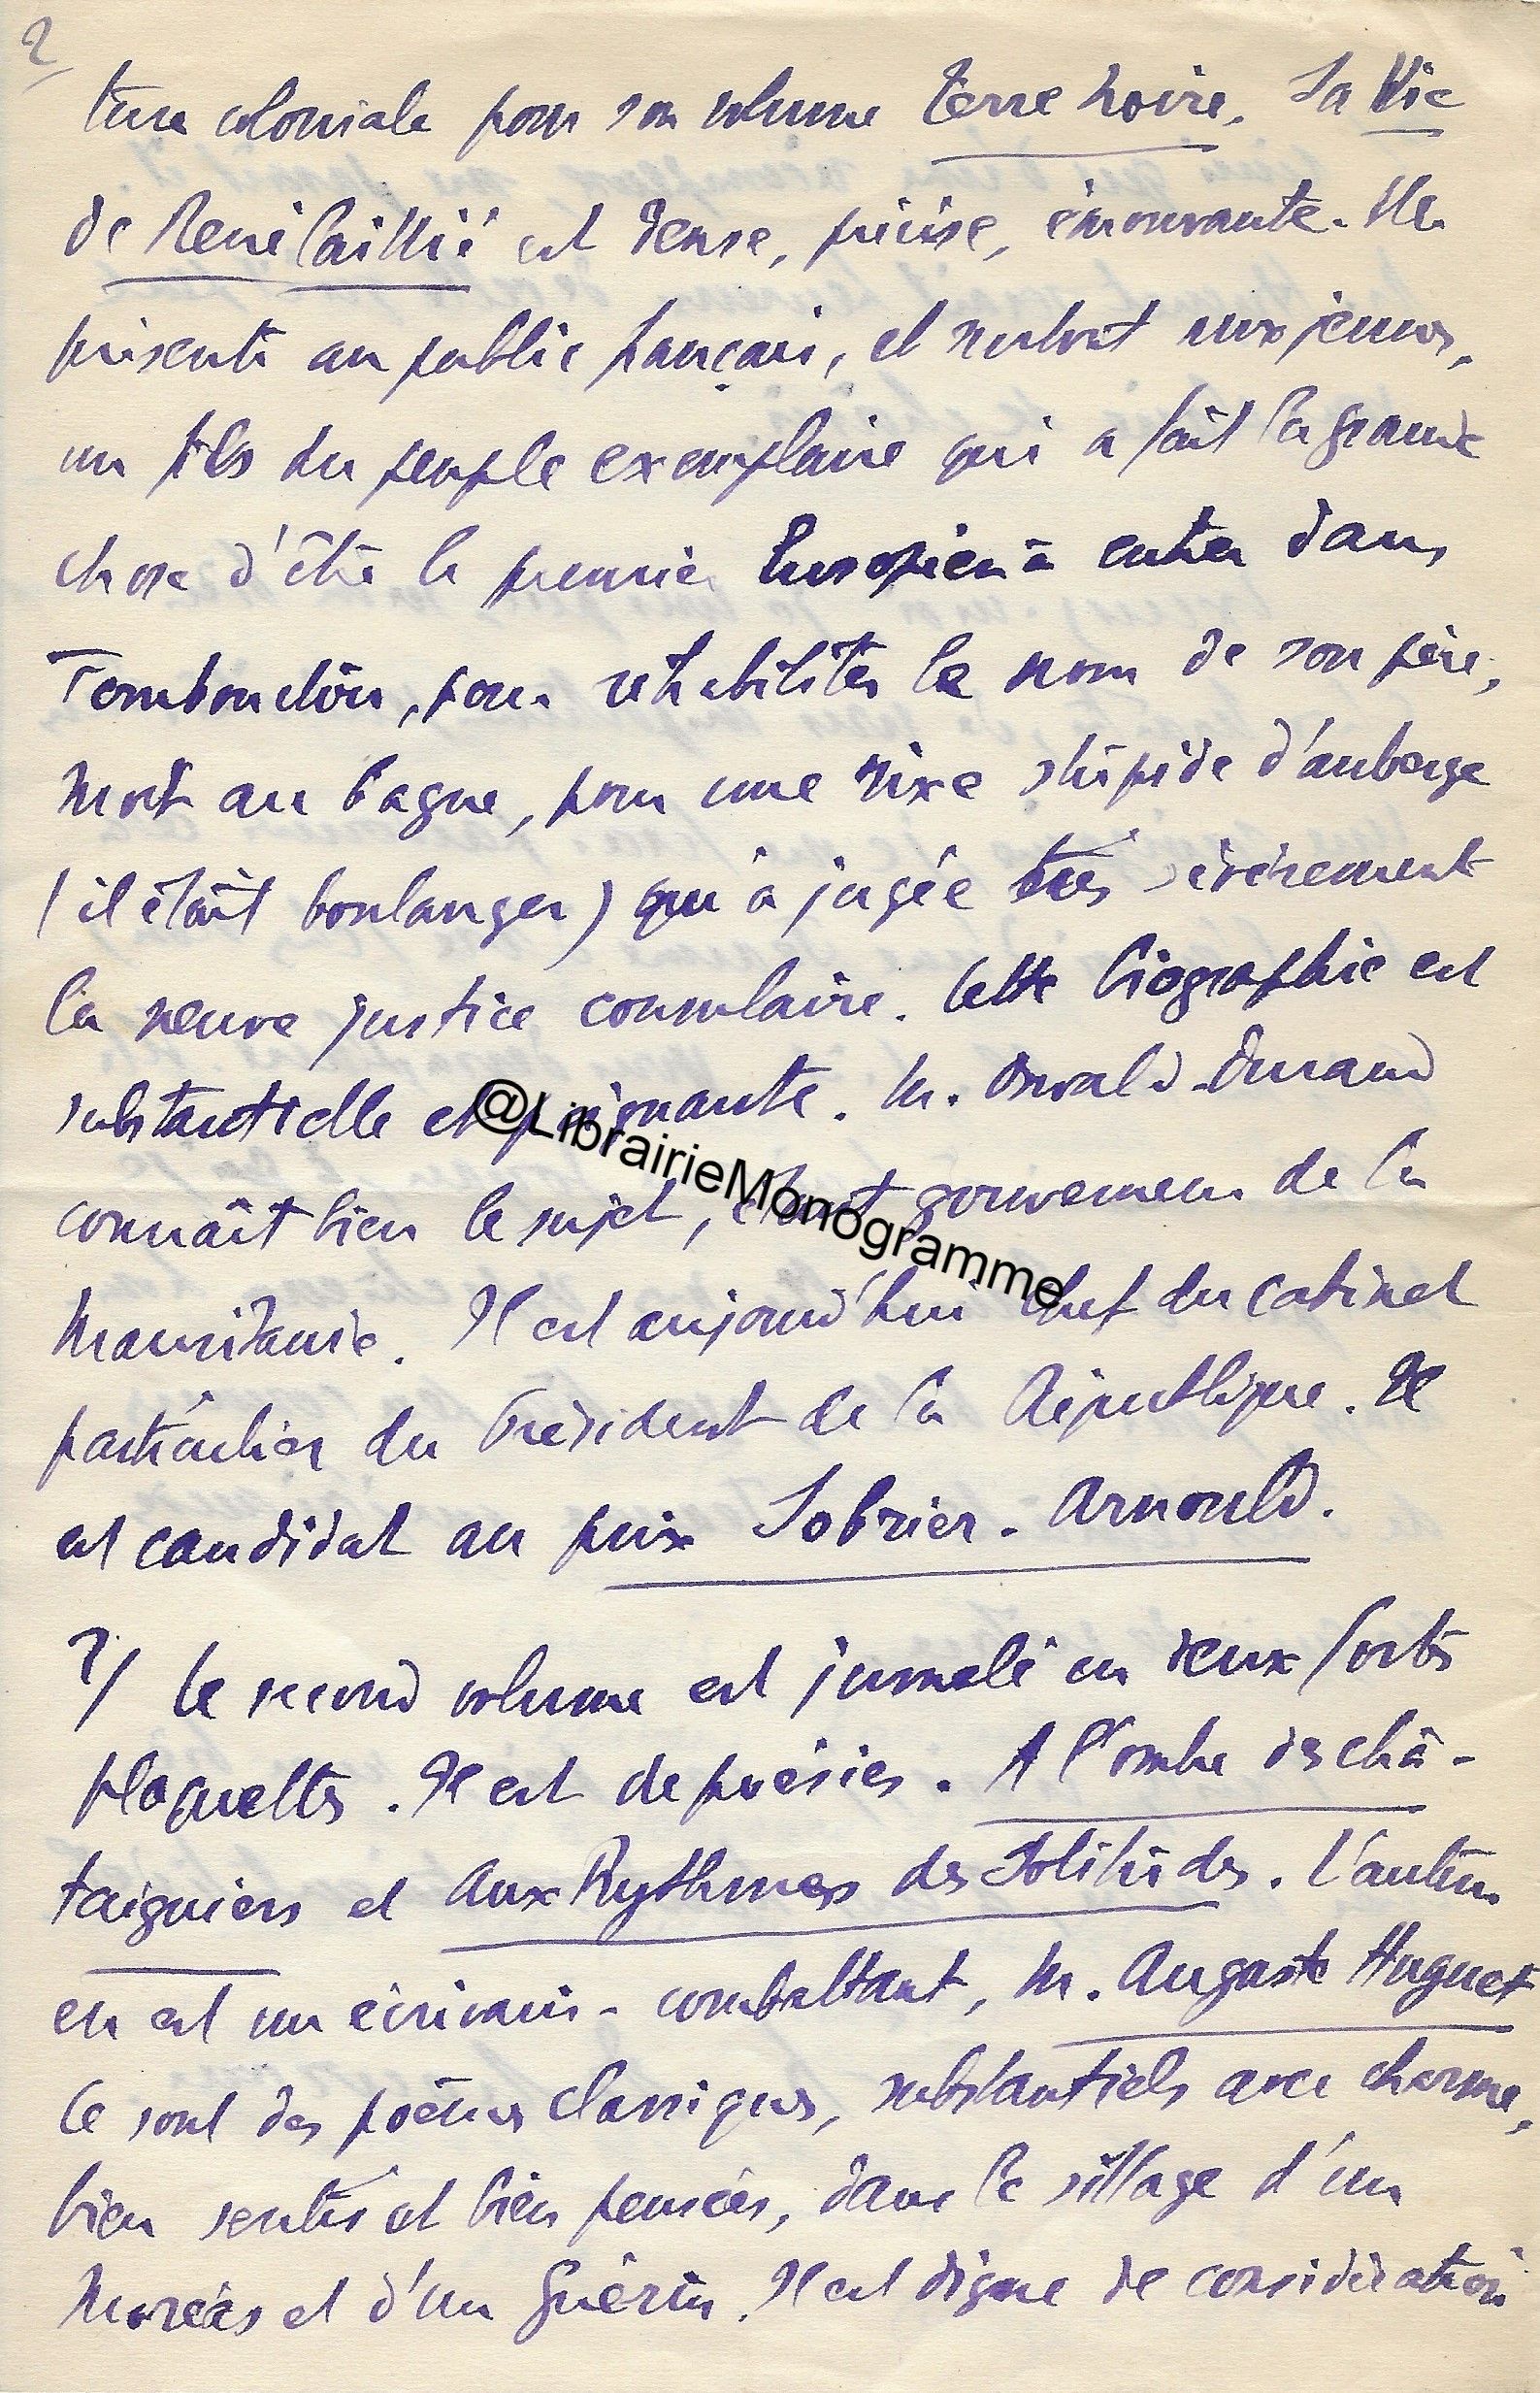 2
ture coloniale pour son volume Terre Noire. Sa Vie
de René Caillié est dense, précise, émouvante. Elle
présente au public français, et surtout aux jeunes,
un fils du peuple exemplaire qui a fait la grande
chose d'être le premier Européen à entrer dans
Tombouctou, pour réhabiliter le nom de son père,
mort au bagne, pour une rixe stupide d'auberge
(il était boulanger) qu'a jugée très sévèrement
la neuve justice consulaire. Cette biographie est
substantielle et poignante. M. Oswald Durand
connaît bien le sujet, étant gouverneur de la
Mauritanie. Il est aujourd'hui chef du cabinet
particulier du Président de la République. Il
est candidat au prix Sobrier-Arnould.
2/ Le second volume est jumelé en deux fortes
plaquettes. Il est de poésies. A l'ombre des châ-
taigniers et Aux Rythmes des Solitudes. L'auteur
en est un écrivain-combattant, M. Auguste Huguet
Ce sont des poèmes classiques, substantiels avec charme,
bien sentis et bien pensés, dans le sillage d'un
Moréas et d'un Guérin. Il est digne de considération
@LibrairieMonogramme